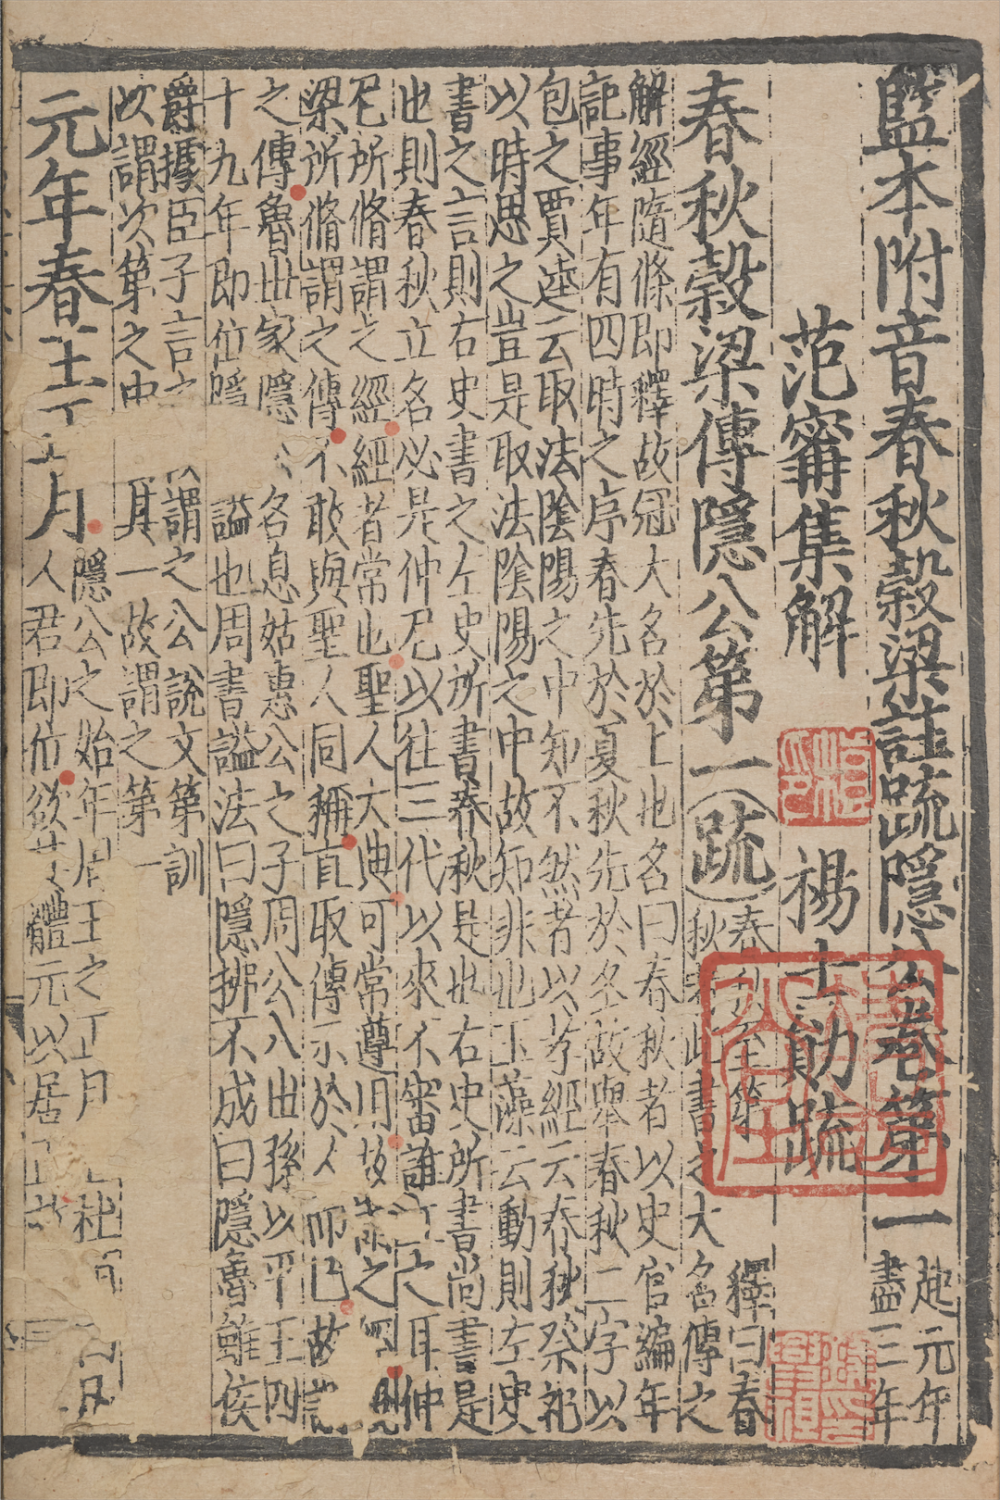 監本附音春秋穀梁註疏隱公卷第一
起元年
盡三年
范甯集解 楊士勛疏
春秋穀梁傳隱公第一 疏
春秋至第 釋曰春
秋 此書之大名傳之
解經隨條即釋故冠大名於上也名曰春秋者以史官編年
記事年有四時之序春先於夏秋先於冬故舉春秋二字以
包之賈逵云取法陰陽之中知不然者以孝經云春秋祭祀
以時思之豈是取法陰陽之中故知非也玉藻云動則左史
書之言則右史書之左史所書春秋是也右史所書尚書是
也則春秋立名必是仲尼以往三代以來不審誰立之耳仲
尼所脩謂之經經者常也聖人大典可常遵用故 之
梁所脩謂之傳不敢與聖人同稱直取傳示於人而已故謂
之傳魯世家隱公名息姑惠公之子周公八世孫以平王四
十九年即位隱謚也周書謚法曰隱拂不成曰隱魯雖侯
爵據臣子言之 謂之公說文第訓
次謂次第之中 其一故謂之第一
元年春王正月
隱公之始年周王之正月 杜
人君即位欲其體元以居正故